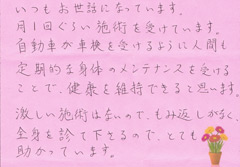 いつもお世話になっています。
月1回ぐらい施術を受けています。
自動車が車検を受けるように人間も
定期的な身体のメンテナンスを受ける
ことで、健康を維持できると思います。
激しい施術はないので、もみ返しがなく、
全身を診て下さるので、とても
助かっています。